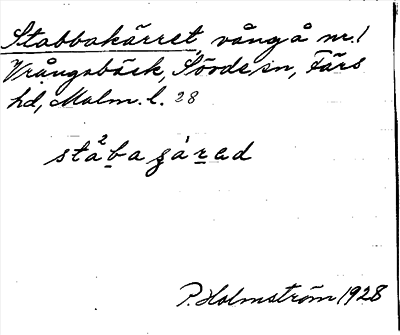 Stabbakärret, vång å nr. 1
Vrångabäck, Sövde sn, Färs
hd, Malm. l. 28
sta²ba ʒárad
P. Holmström 1928